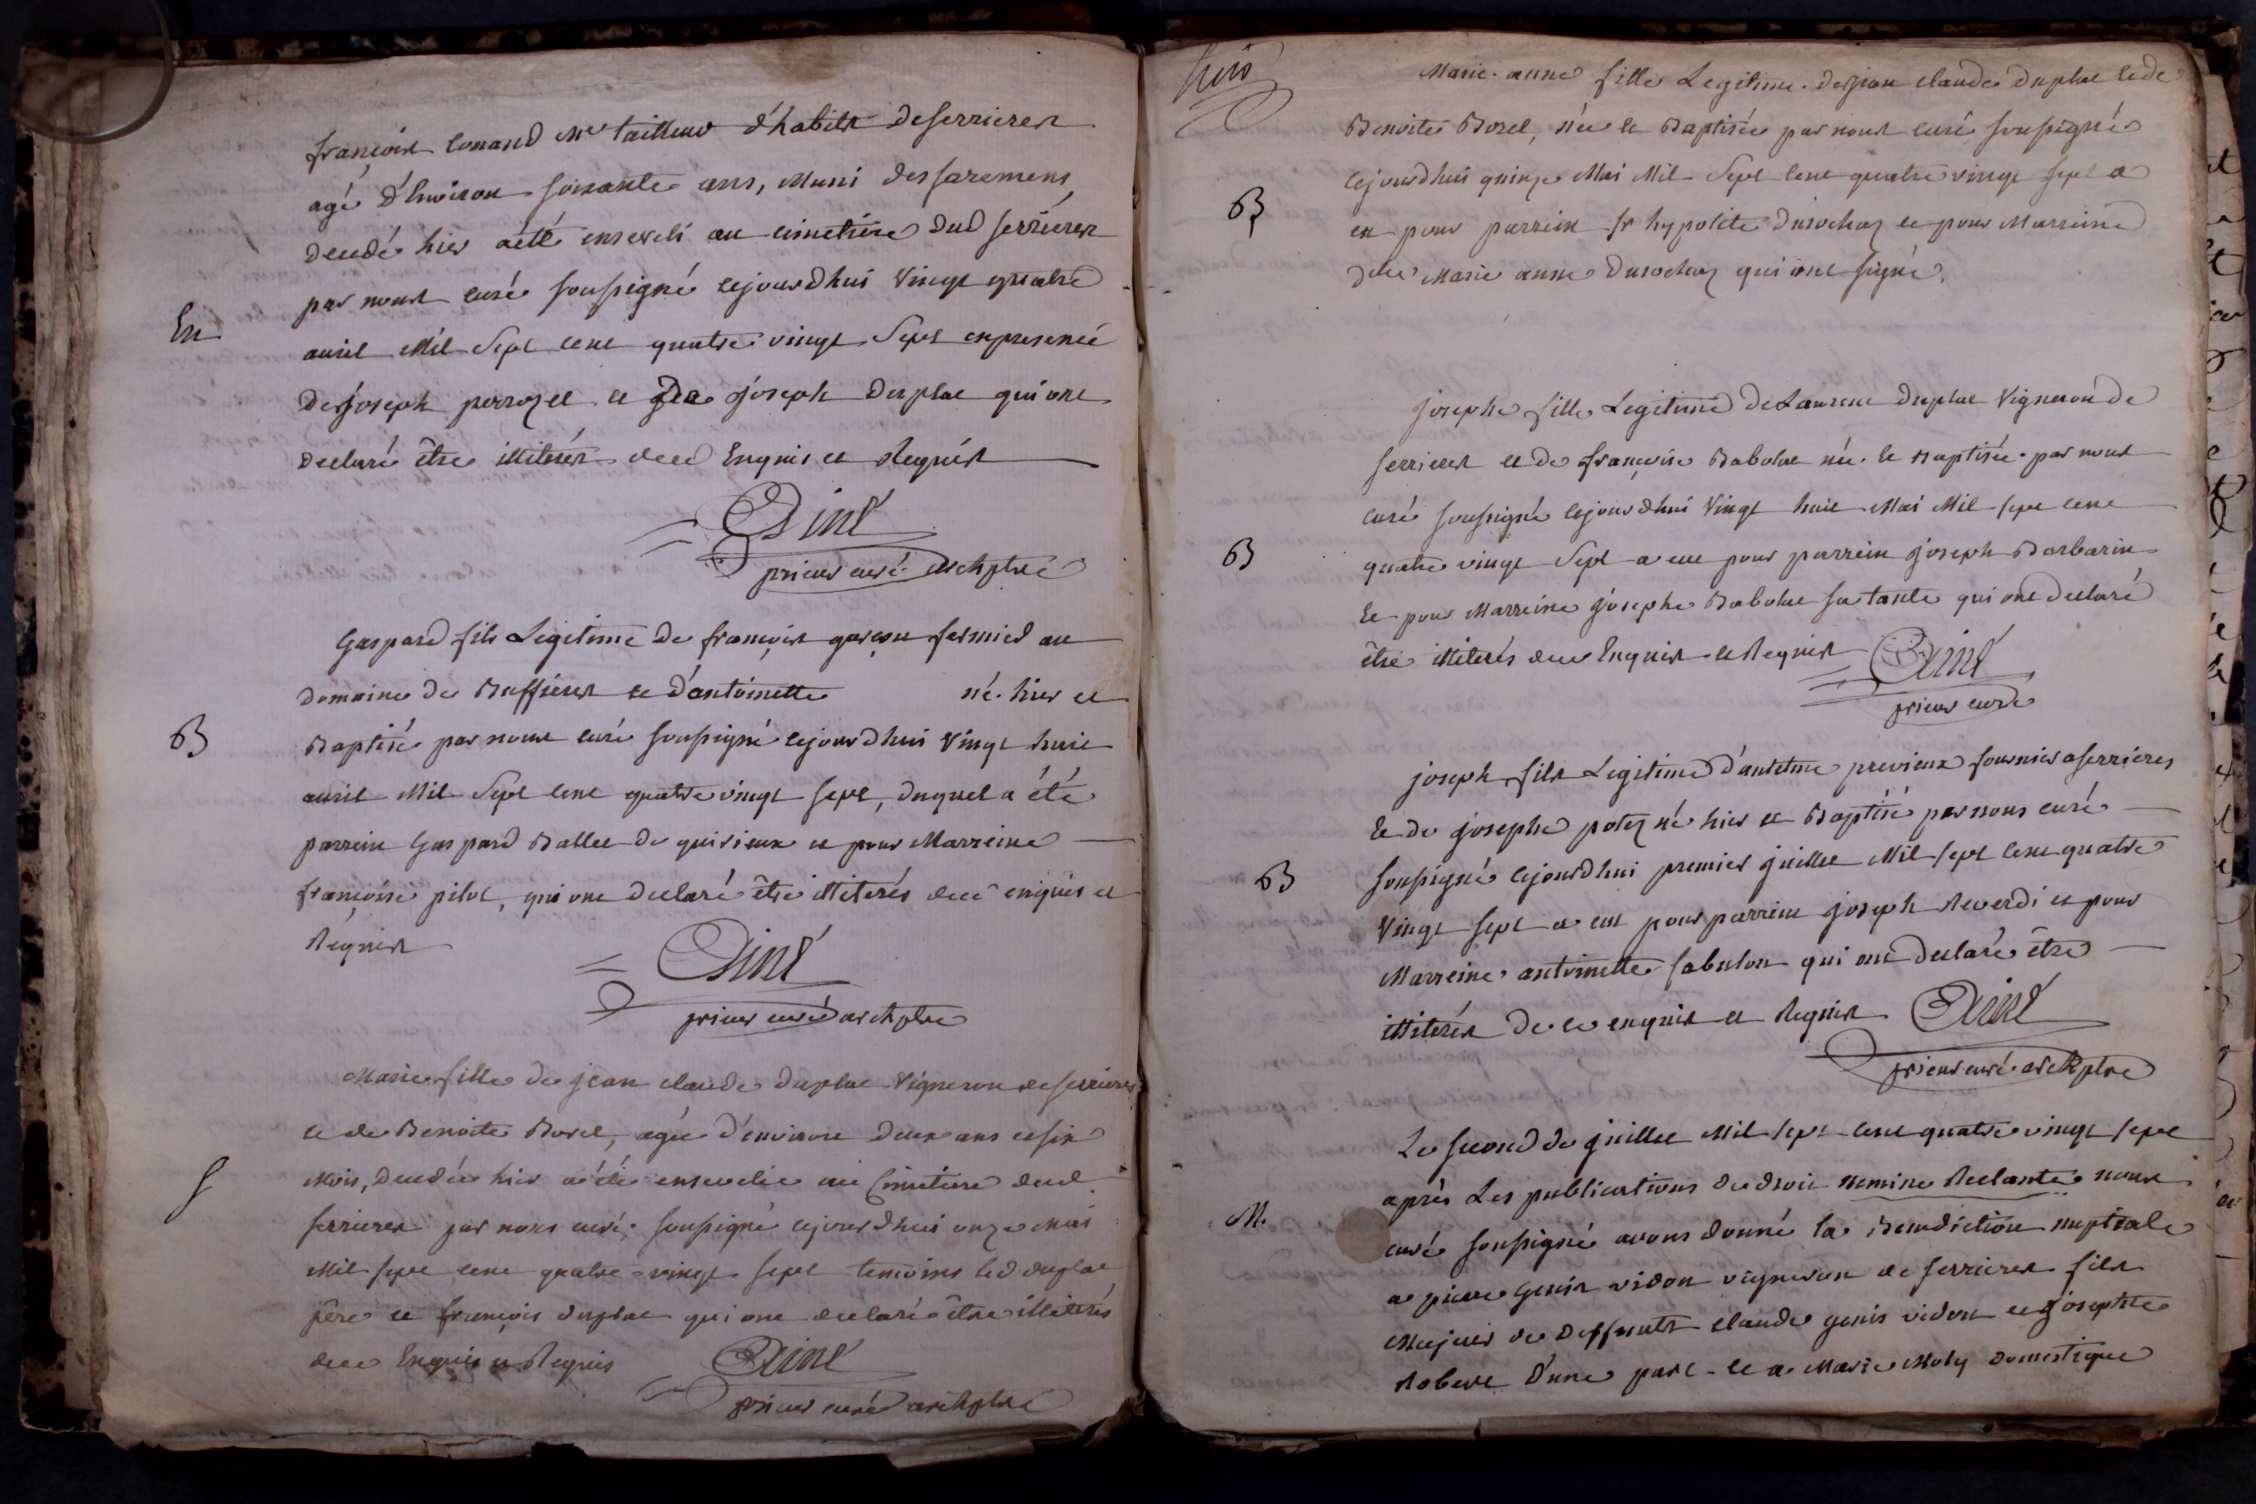 françois conand Me tailleur d'habits de serrieres
agé d'Environ soixante ans, Muni des sacremens
decedé hier a été enseveli au cimetière dud serrières
par nous curé soussigné cejourdhui Vingt quatre
En
avril Mil Sept cent quatre vingt Sept en presence
de joseph perrozet et de joseph duplat qui ont
declaré être illiterés dece Enquis et Requis
Diné
prieur curé archiptre
Gaspard fils Legitime de françois garçon fermier au
domaine de Buffieres et d'antoinette né hier et
B
Baptisé par nous curé soussigné cejourdhui Vingt huit
avril Mil Sept Cent quatre vingt sept, duquel a été
parrein Gaspard Ballet de quirieux et pour Marreine
françoise pilot, qui ont declaré être illiterés dece enquis et
Requis
Diné
prieur curé archiptre
Marie fille de jean claude duplat Vigneron de serrieres
et de Benoite Borel, agée d'environ deux ans et six
S
Mois, decedée hier a été ensevelie au Cimetiere dud
serrieres par nous curé soussigné cejourdhui onze Mai
Mil sept cent quatre vingt sept temoins led duplat
père et françois duplat qui ont declaré être illiterés
dece Enquis et Requis
Diné
prieur curé archiptre
Marie anne fille Legitime de jean claude duplat et de
Benoite Borel, née et Baptisée par nous curé soussigné
cejourdhui quinze Mai Mil Sept Cent quatre vingt sept a
B
eu pour parrein sr hypolite durochaz et pour Marreine
dlle Marie anne durochaz qui ont signé.
josephe fille Legitime de Laurent duplat Vigneron de
serrieres et de françoise Babolat née et Baptisée par nous
curé soussigné cejourdhui Vingt huit Mai Mil sept cent
B
quatre vingt Sept a eu pour parrein joseph Barbarin
Et pour Marreine josephe Babolat sa tante qui ont declaré
être illiterés dece Enquis et Requis
Diné
prieur curé
joseph fils Legitime d'antelme previeux fournier a serrieres
Et de josephe potez né hier et Baptisé par nous curé
B
soussigné cejourdhui premier juillet Mil sept cent quatre
Vingt sept a eu pour parrein joseph Reverdi et pour
Marreine antoinette sabulon qui ont declaré être
illiterés de ce enquis et Requis
Diné
prieur curé archiptre
Le second de juillet Mil sept cent quatre vingt sept
après Les publications de droit nemine Reclante nous
M.
curé soussigné avons donné la Benediction nuptiale
a pierre genis vidon vigneron de serrieres fils
Majeur de deffunts claude genis vidon et josephte
Robert d'une part et a Marie Moly domestique